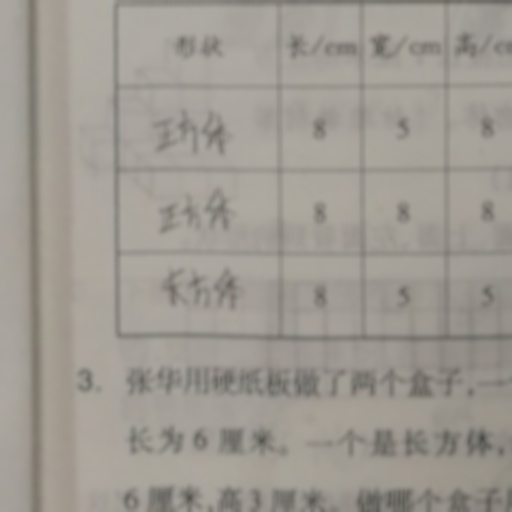 形状 长/cm 宽/cm 高/c
正方体 8 5 8
正方体 8 8 8
长方体 8 5 5
3. 张华用硬纸板做了两个盒子,一
长为6厘米。一个是长方体,
6厘米,高3厘米。做哪个盒子